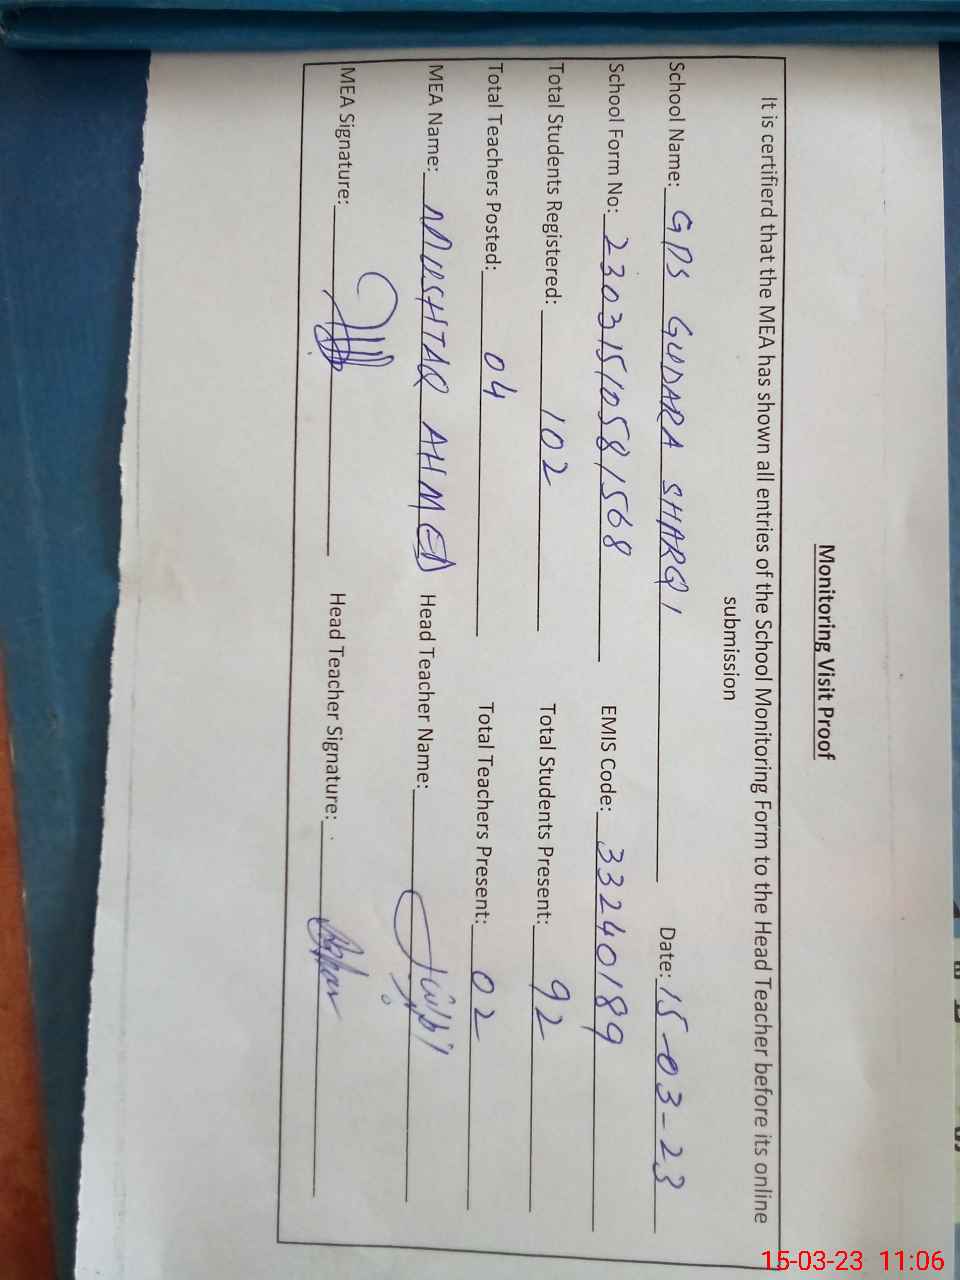 Monitoring Visit Proof
It is certifierd that the MEA has shown all entries of the School Monitoring Form to the Head Teacher before its online
submission
School Name: GPS GUDARA SHARQI Date: 15-03-23
School Form No: 23031510581568 EMIS Code: 33240189
Total Students Registered: 102 Total Students Present: 92
Total Teachers Posted: 04 Total Teachers Present: 02
MEA Name: MUSHTAQ AHMED Head Teacher Name:
MEA Signature: Head Teacher Signature:
15-03-23 11:06